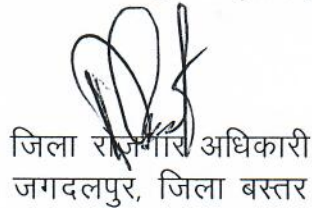 जिला रोजगार अधिकारी
जगदलपुर, जिला बस्तर